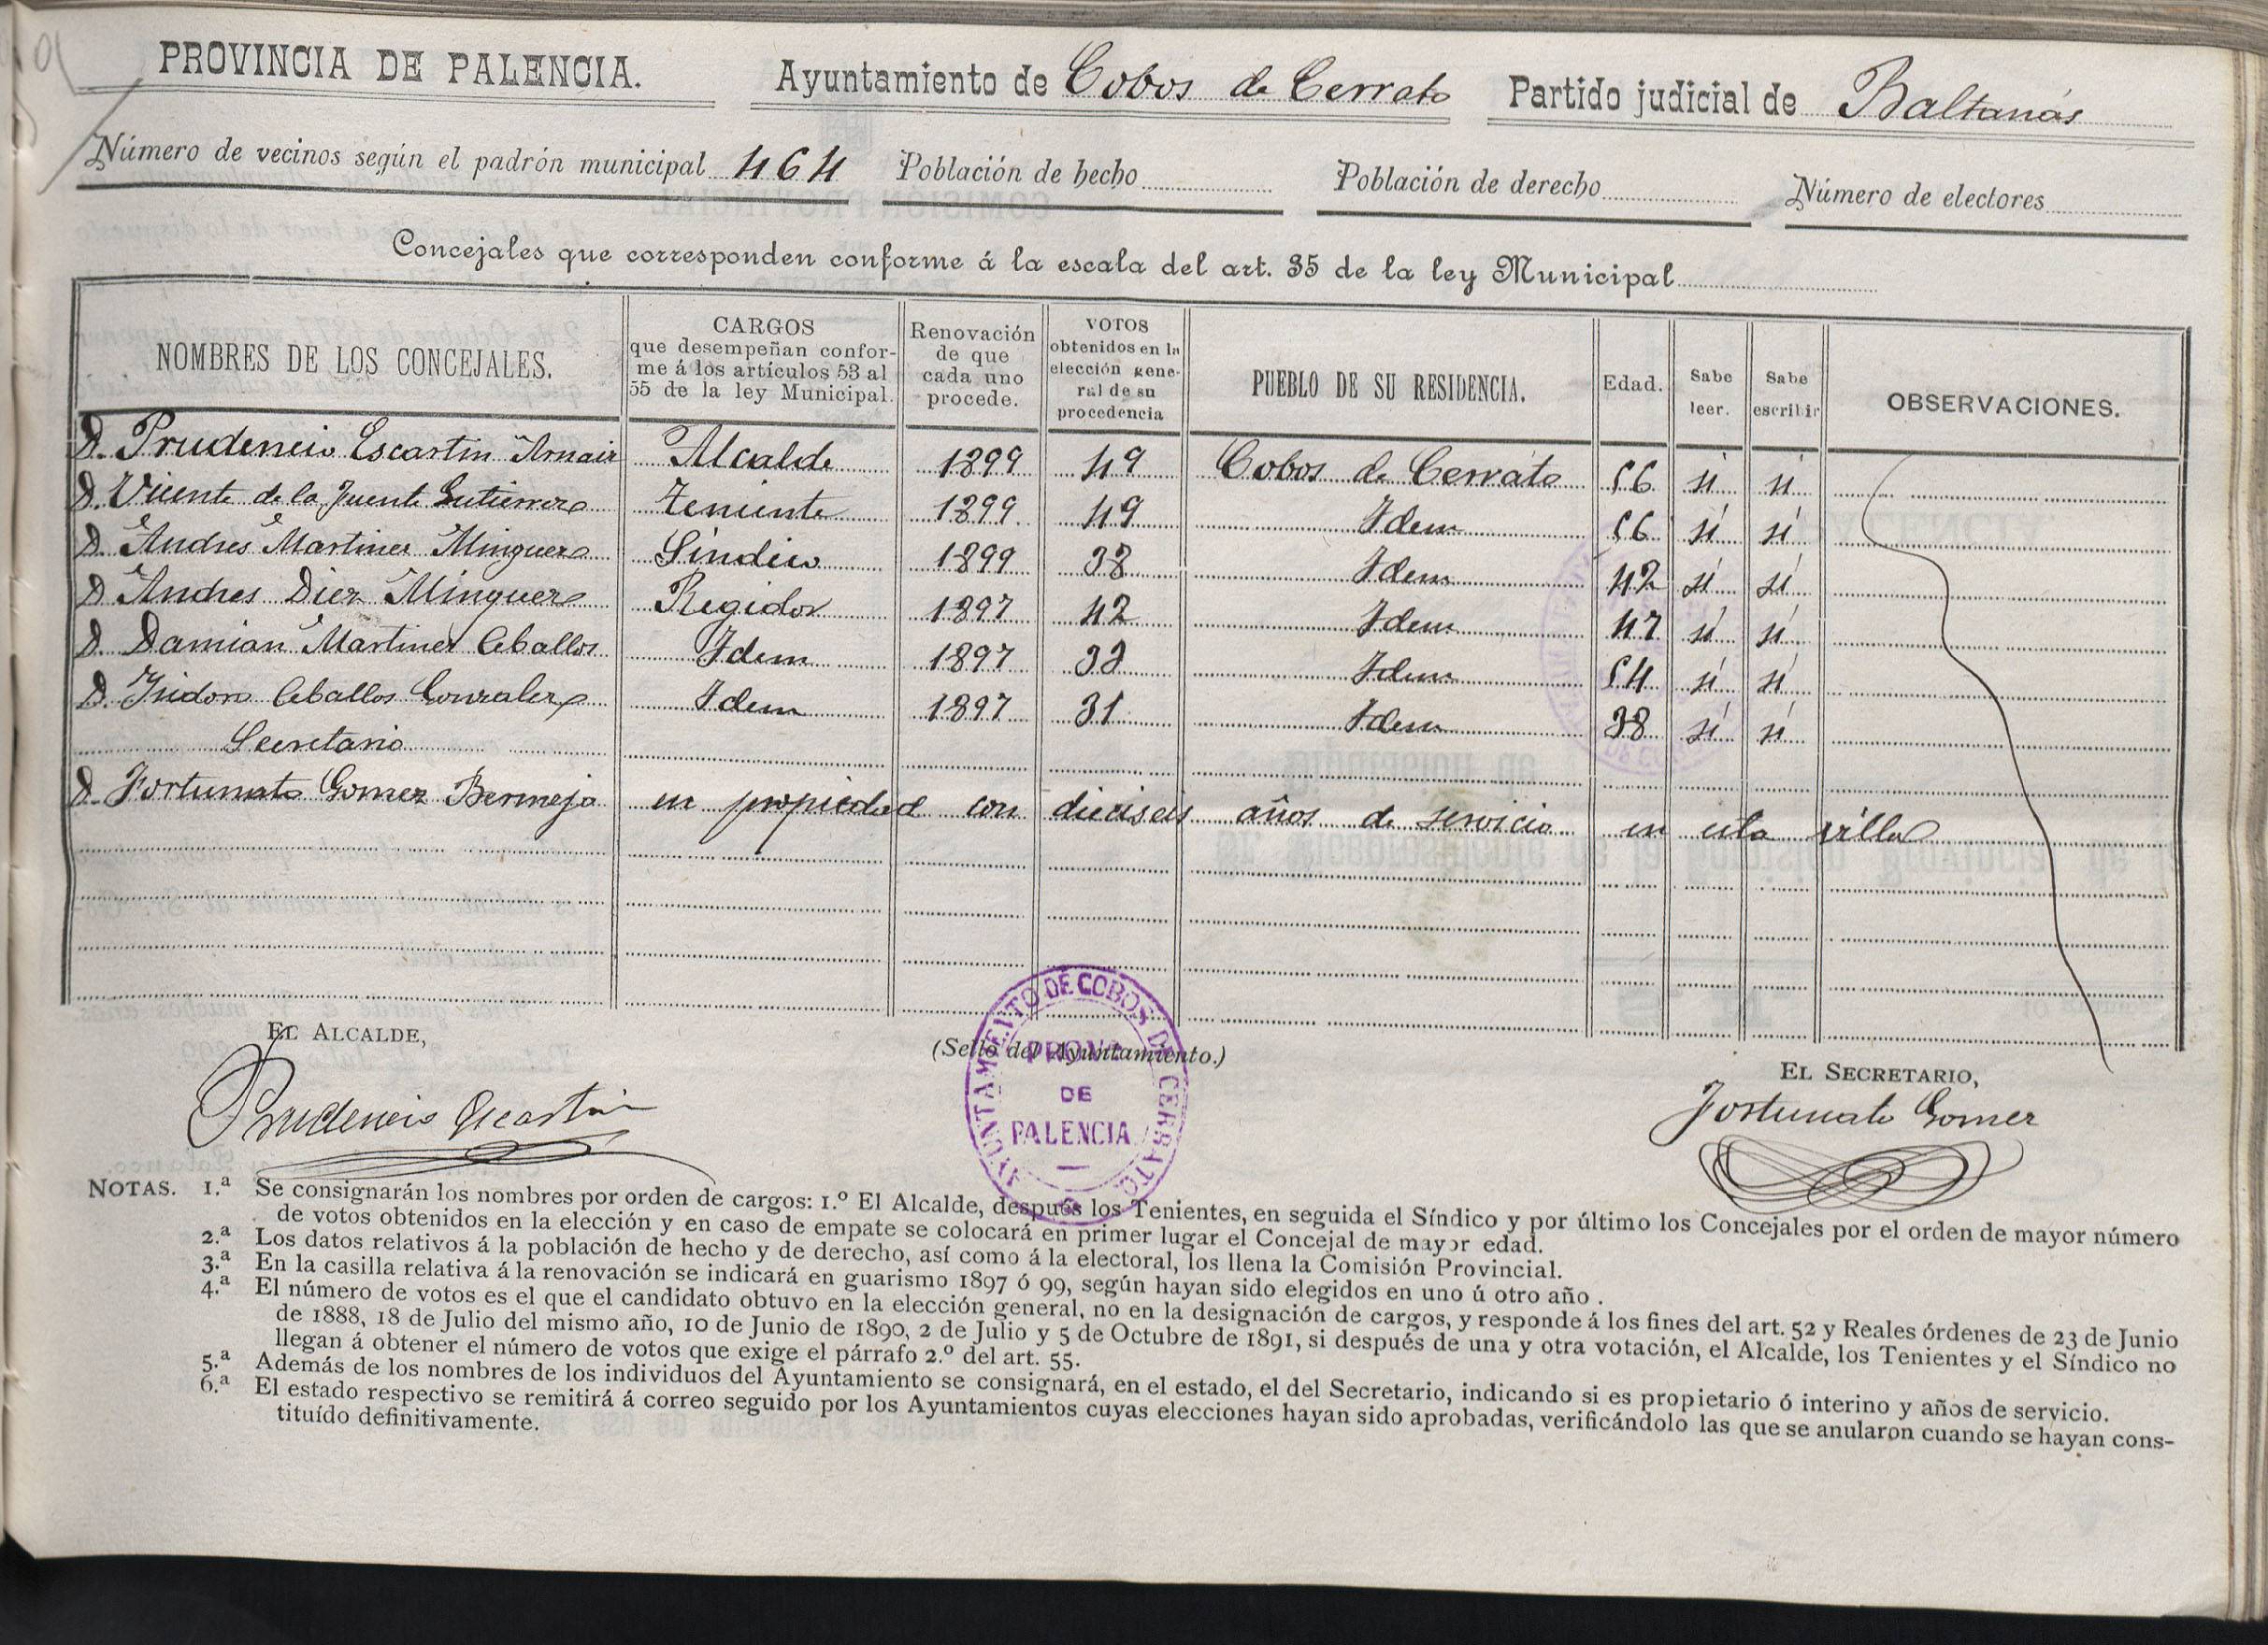 PROVINCIA DE PALENCIA. Ayuntamiento de Cobos de Cerrato Partido judicial de Baltanás
Número de vecinos según el padrón municipal 464 Población de hecho Población de derecho Número de electores
Concejales que corresponden conforme á la escala del art. 35 de la ley Municipal
NOMBRES DE LOS CONCEJALES. CARGOS que desempeñan conforme á los artículos 53 al 55 de la ley Municipal. Renovación de que cada uno procede. VOTOS obtenidos en la elección general de su procedencia PUEBLO DE SU RESIDENCIA. Edad. Sabe leer. Sabe escribir OBSERVACIONES.
D. Prudencio Escartin Arnaiz Alcalde 1899 49 Cobos de Cerrato 56 si si
D. Vicente de la Fuente Gutierrez Teniente 1899 49 Idem 56 si si
D. Andres Martinez Minguez Síndico 1899 38 Idem 42 si si
D. Andres Diez Minguez Regidor 1897 42 Idem 47 si si
D. Damian Martinez Ceballos Idem 1897 33 Idem 54 si si
D. Isidoro Ceballos Gonzalez Idem 1897 31 Idem 38 si si
Secretario
D. Fortunato Gomez Bermejo en propiedad con dieciseis años de servicio en esta villa
EL ALCALDE,
(Sello del Ayuntamiento.)
EL SECRETARIO,
Prudencio Escartin
AYUNTAMIENTO DE COBOS DE CERRATO
PROVA
DE
PALENCIA
Fortunato Gomez
NOTAS. 1.ª Se consignarán los nombres por orden de cargos: 1.º El Alcalde, después los Tenientes, en seguida el Síndico y por último los Concejales por el orden de mayor número
de votos obtenidos en la elección y en caso de empate se colocará en primer lugar el Concejal de mayor edad.
2.ª Los datos relativos á la población de hecho y de derecho, así como á la electoral, los llena la Comisión Provincial.
3.ª En la casilla relativa á la renovación se indicará en guarismo 1897 ó 99, según hayan sido elegidos en uno ú otro año .
4.ª El número de votos es el que el candidato obtuvo en la elección general, no en la designación de cargos, y responde á los fines del art. 52 y Reales órdenes de 23 de Junio
de 1888, 18 de Julio del mismo año, 10 de Junio de 1890, 2 de Julio y 5 de Octubre de 1891, si después de una y otra votación, el Alcalde, los Tenientes y el Síndico no
llegan á obtener el número de votos que exige el párrafo 2.º del art. 55.
5.ª Además de los nombres de los individuos del Ayuntamiento se consignará, en el estado, el del Secretario, indicando si es propietario ó interino y años de servicio.
6.ª El estado respectivo se remitirá á correo seguido por los Ayuntamientos cuyas elecciones hayan sido aprobadas, verificándolo las que se anularon cuando se hayan cons-
tituído definitivamente.